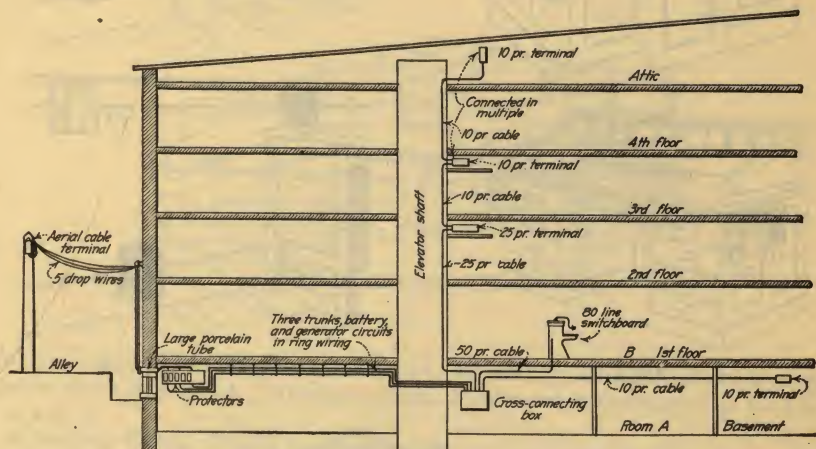 10 pr. terminal
Attic
Connected in
multiple
10 pr cable
4th floor
10 pr. terminal
10 pr. cable
3rd floor
25 pr. terminal
Elevator shaft
25 pr cable
2nd floor
Aerial cable
terminal
5 drop wires
80 line
switchboard
Large porcelain
tube
Three trunks, battery,
and generator circuits
in ring wiring
50 pr. cable
B 1st floor
Alley
Protectors
Cross-connecting
box
10 pr. cable
10 pr. terminal
Room A
Basement